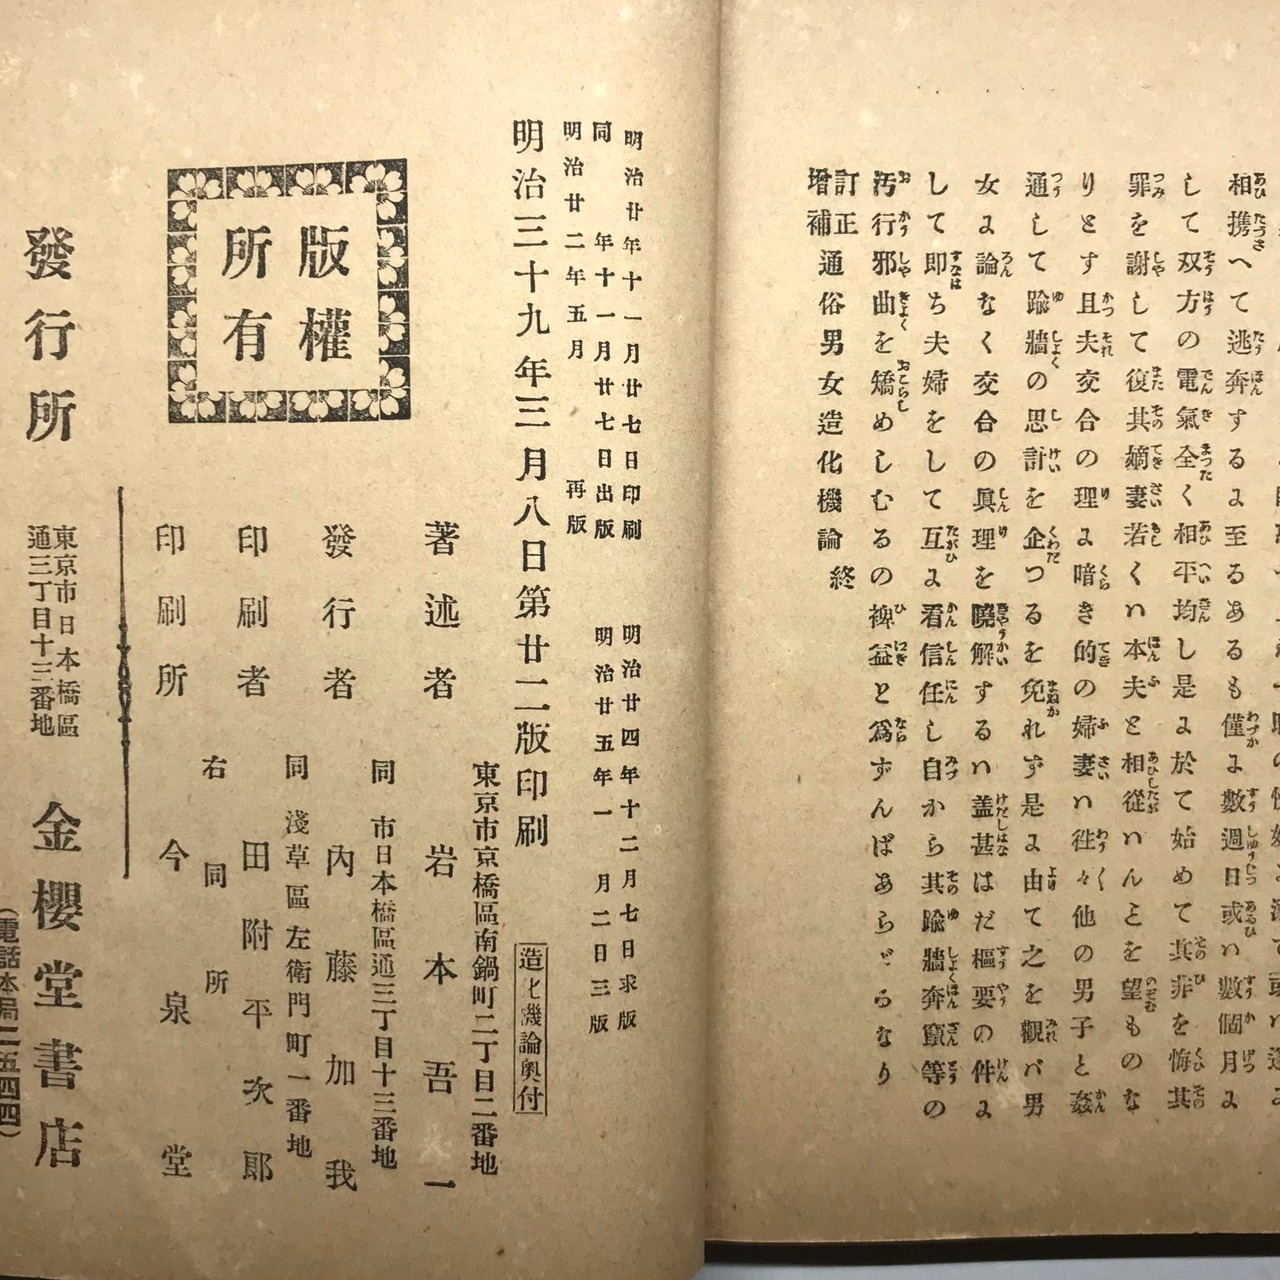 相携へて逃奔するに至るあるも僅に數週日或い數個月に
して双方の電氣全く相平均し是に於て始めて其非を悔其
罪を謝して復其嫡妻若くい本夫と相從いんとを望ものな
りとす且夫交合の理に暗き的の婦妻い徃々他の男子と姦
通して踰牆の思計を企つるを免れず是に由て之を觀バ男
女に論なく交合の眞理を曉解するい盖甚はだ樞要の件に
して即ち夫婦をして互に看信任し自から其踰牆奔竄等の
汚行邪曲を矯めしむるの裨益と爲ずんばあらざるなり
訂正增補通俗男女造化機論終
明治廿年十一月廿七日印刷 明治廿四年十二月七日求版
同年十一月廿七日出版 明治廿五年一月二日三版
明治廿二年五月再版
明治三十九年三月八日第廿二版印刷
造化機論奥付
東京市京橋區南鍋町二丁目二番地
著述者 岩本吾一
同市日本橋區通三丁目十三番地
發行者 內藤加我
同淺草區左衛門町一番地
印刷者 田附平次郎
右同所
印刷所 今泉堂
版權
所有
發行所 東京市日本橋區
通三丁目十三番地
金櫻堂書店
(電話本局二五四四)